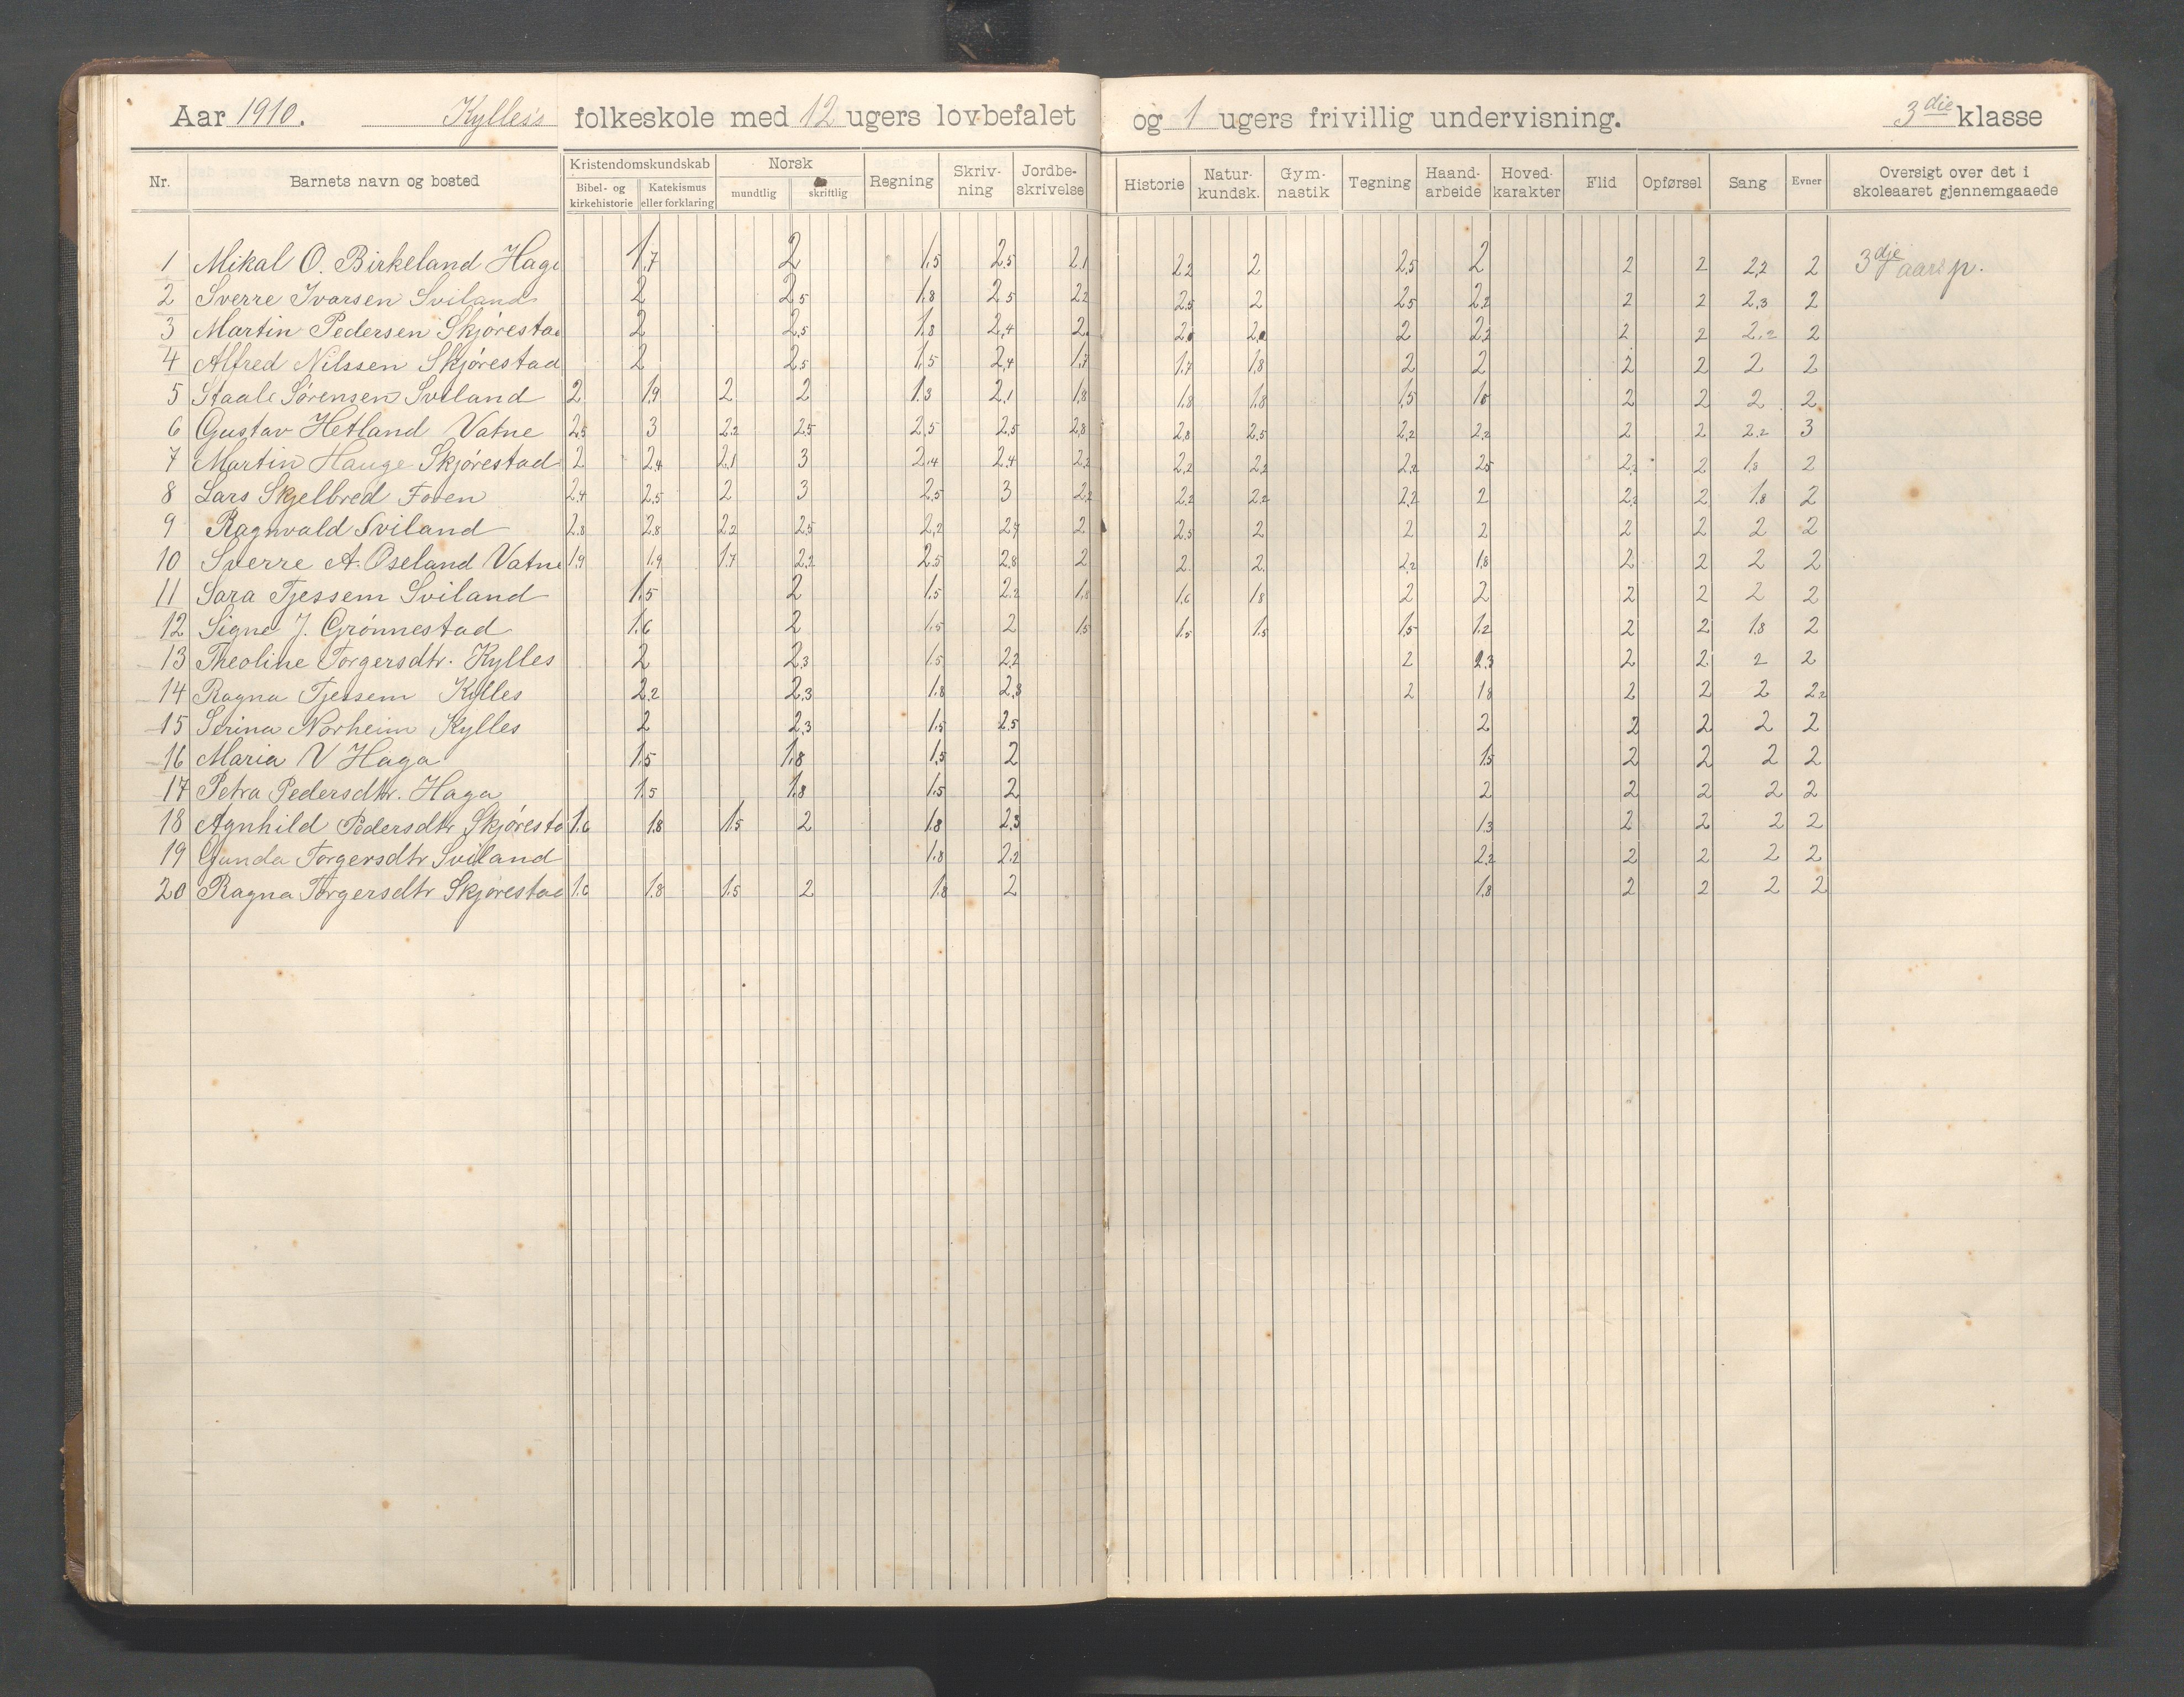 Aar 1910. Kylles's folkeskole med 12 ugers lovbefalet og 1 ugers frivillig undervisning. 3die klasse
Nr. Barnets navn og bosted Kristendomskundskab Bibel- og kirkehistorie Katekismus eller forklaring Norsk mundtlig skrittlig Regning Skriv-ning Jordbe-skrivelse Historie Natur-kundsk. Gym-nastik Tegning Haand-arbeide Hoved-karakter Flid Opførsel Sang Evner Oversigt over det i skoleaaret gjennemgaaede
1 Mikal O. Birkeland Haga 1,7 2 1,5 2,5 2,1 2,2 2 2,5 2 2 2 2,2 2 3dje aars p.
2 Sverre Ivarsen Sviland 2 2,5 1,8 2,5 2,2 2,5 2 2,5 2,2 2 2 2,3 2
3 Martin Pedersen Skjørestad 2 2,5 1,8 2,4 2 2 2 2 2,2 2 2 2,2 2
4 Alfred Nilssen Skjørestad 2 2,5 1,5 2,4 1,7 1,7 1,8 2 2 2 2 2 2
5 Staale Sørensen Sviland 2 1,9 2 2 1,3 2,1 1,8 1,8 1,8 1,5 2 2 2 2
6 Gustav Hetland Vatne 2,5 3 2,2 2,5 2,5 2,5 2,8 2,8 2,5 2,2 2,2 2 2 2,2 3
7 Martin Hauge Skjørestad 2 2,4 2,1 3 2,4 2,4 2,2 2,2 2,2 2,2 2,5 2 2 1,8 2
8 Lars Skjelbred Foven 2,4 2,5 2 3 2,5 3 2,2 2,2 2,2 2,2 2 2 2 1,8 2
9 Ragnvald Sviland 2,8 2,8 2,2 2,5 2,2 2,4 2 2,5 2 2 2 2 2 2 2
10 Sverre A. Oseland Vatne 1,9 1,9 1,7 2,2 2,5 2,8 2 2 2 2,2 1,8 2 2 2 2
11 Sara Tjessem Sviland 1,5 2 1,5 2,2 1,8 1,6 1,8 2 2 2 2 2 2
12 Signe J. Grönnestad 1,6 2 1,5 2 1,5 1,5 1,5 1,5 1,2 2 2 1,8 2
13 Theoline Torgersdtr. Kylles 2 2,3 1,5 2,2 2 2,3 2 2 2 2
14 Ragna Tjessem Kylles 2,2 2,3 1,8 2,3 2 1,8 2 2 2 2,2
15 Serina Norheim Kylles 2 2,3 1,5 2,5 2 2 2 2 2
16 Maria V Haga 1,5 1,8 1,5 2 1,5 2 2 2 2
17 Petra Pedersdtr. Haga 1,5 1,8 1,5 2 2 2 2 2 2
18 Agnhild Pedersdtr Skjøresta 1,6 1,8 1,5 2 1,8 2,3 1,3 2 2 2 2
19 Gunda Torgersdtr Sviland 1,8 2,2 2,2 2 2 2 2
20 Ragna Torgersdtr Skjørestad 1,6 1,8 1,5 2 1,8 2 1,8 2 2 2 2